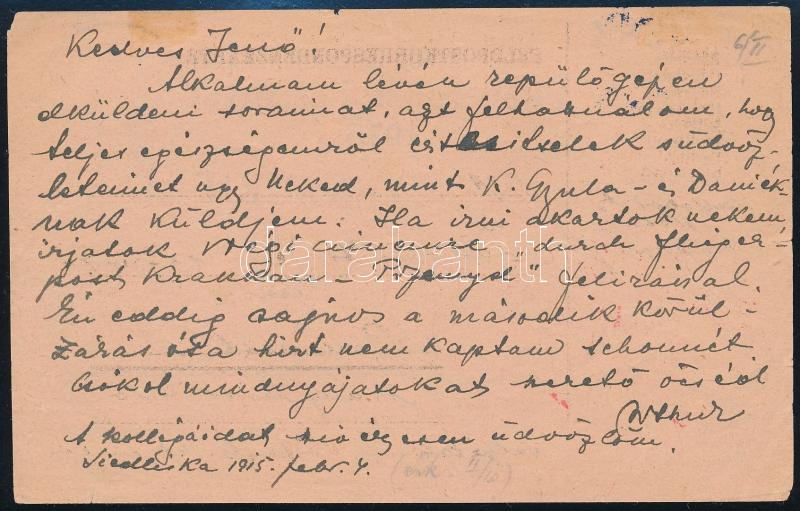 Kedves Jenő!
6/II
Alkalmam lévén repülőgépen
elküldeni soraimat, azt felhasználom, hogy
teljes egészségemről értesitselek s üdvöz-
letemet ugy Neked, mint K. Gyula - és Daniék-
nak küldjem. Ha irni akartok nekem
irjatok régi cimemre "durch Flieger-
post Krakkau - Przemysl" felirással.
Én eddig sajnos a második körül-
zárás óta hirt nem kaptam sehonnét
Csókol mindnyájatokat szerető öcséd
Arthur
A kollégáidat szivélyesen üdvözlöm.
Siedliska 1915. febr. 4.
darabanth